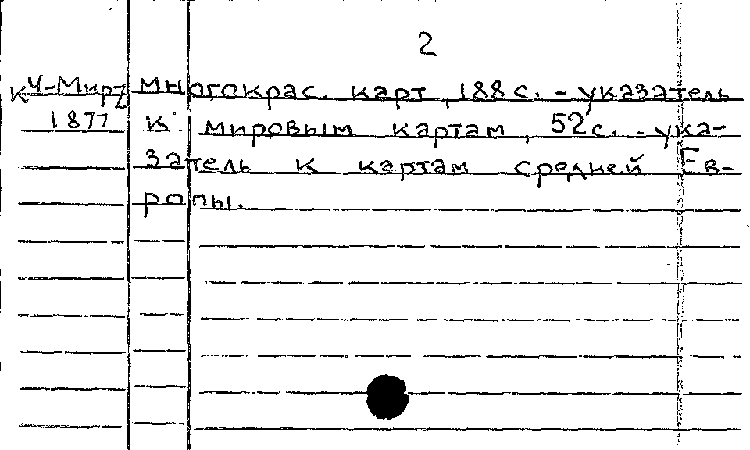 2
КЧ-Мирz многокрас. карт, 188 с. - указатель
1877 к мировым картам, 52 с. - ука-
затель к картам средней Ев-
ропы.